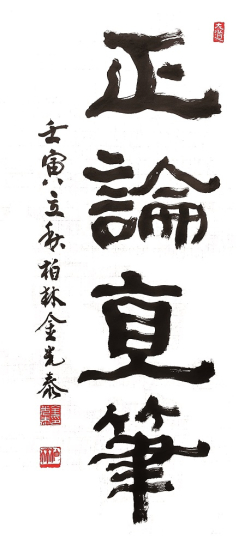 正論直筆
壬寅八立秋 柏林 金光泰